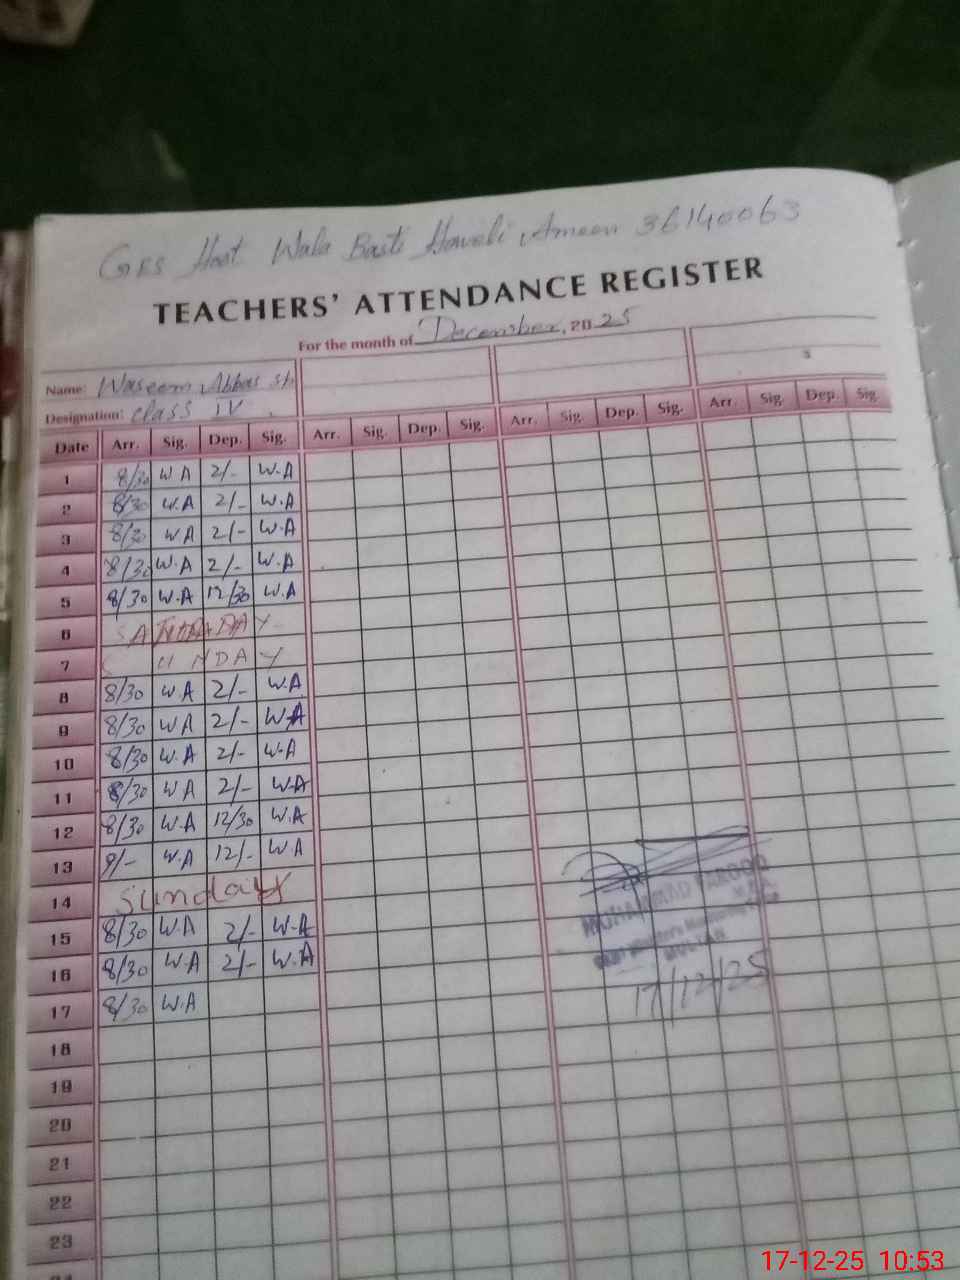 GES Hoot Wala Basti Haveli Ameen 36140063
TEACHERS' ATTENDANCE REGISTER
For the month of December, 2025
Name: Waseem Abbas sh
Designation: class IV
Date Arr. Sig. Dep. Sig. Arr. Sig. Dep. Sig. Arr. Sig. Dep. Sig. Arr. Sig. Dep. Sig.
1 8/30 W A 2/- W.A
2 8/30 W.A 2/- W.A
3 8/30 WA 2/- W.A
4 8/30 W.A 2/- W.A
5 8/30 W.A 12/30 W.A
6 SATURDAY
7 SUNDAY
8 8/30 W.A 2/- W.A
9 8/30 WA 2/- WA
10 8/30 WA 2/- W.A
11 8/30 WA 2/- WA
12 8/30 WA 12/30 W.A
13 9/- W.A 12/- W.A
14 Sunday
15 8/30 W.A 2/- W.A
16 8/30 W.A 2/- W.A
17 8/30 W.A
18
19
20
21
22
23
MUHAMMAD FAROOQ
MULTAN
17/12/25
17-12-25 10:53